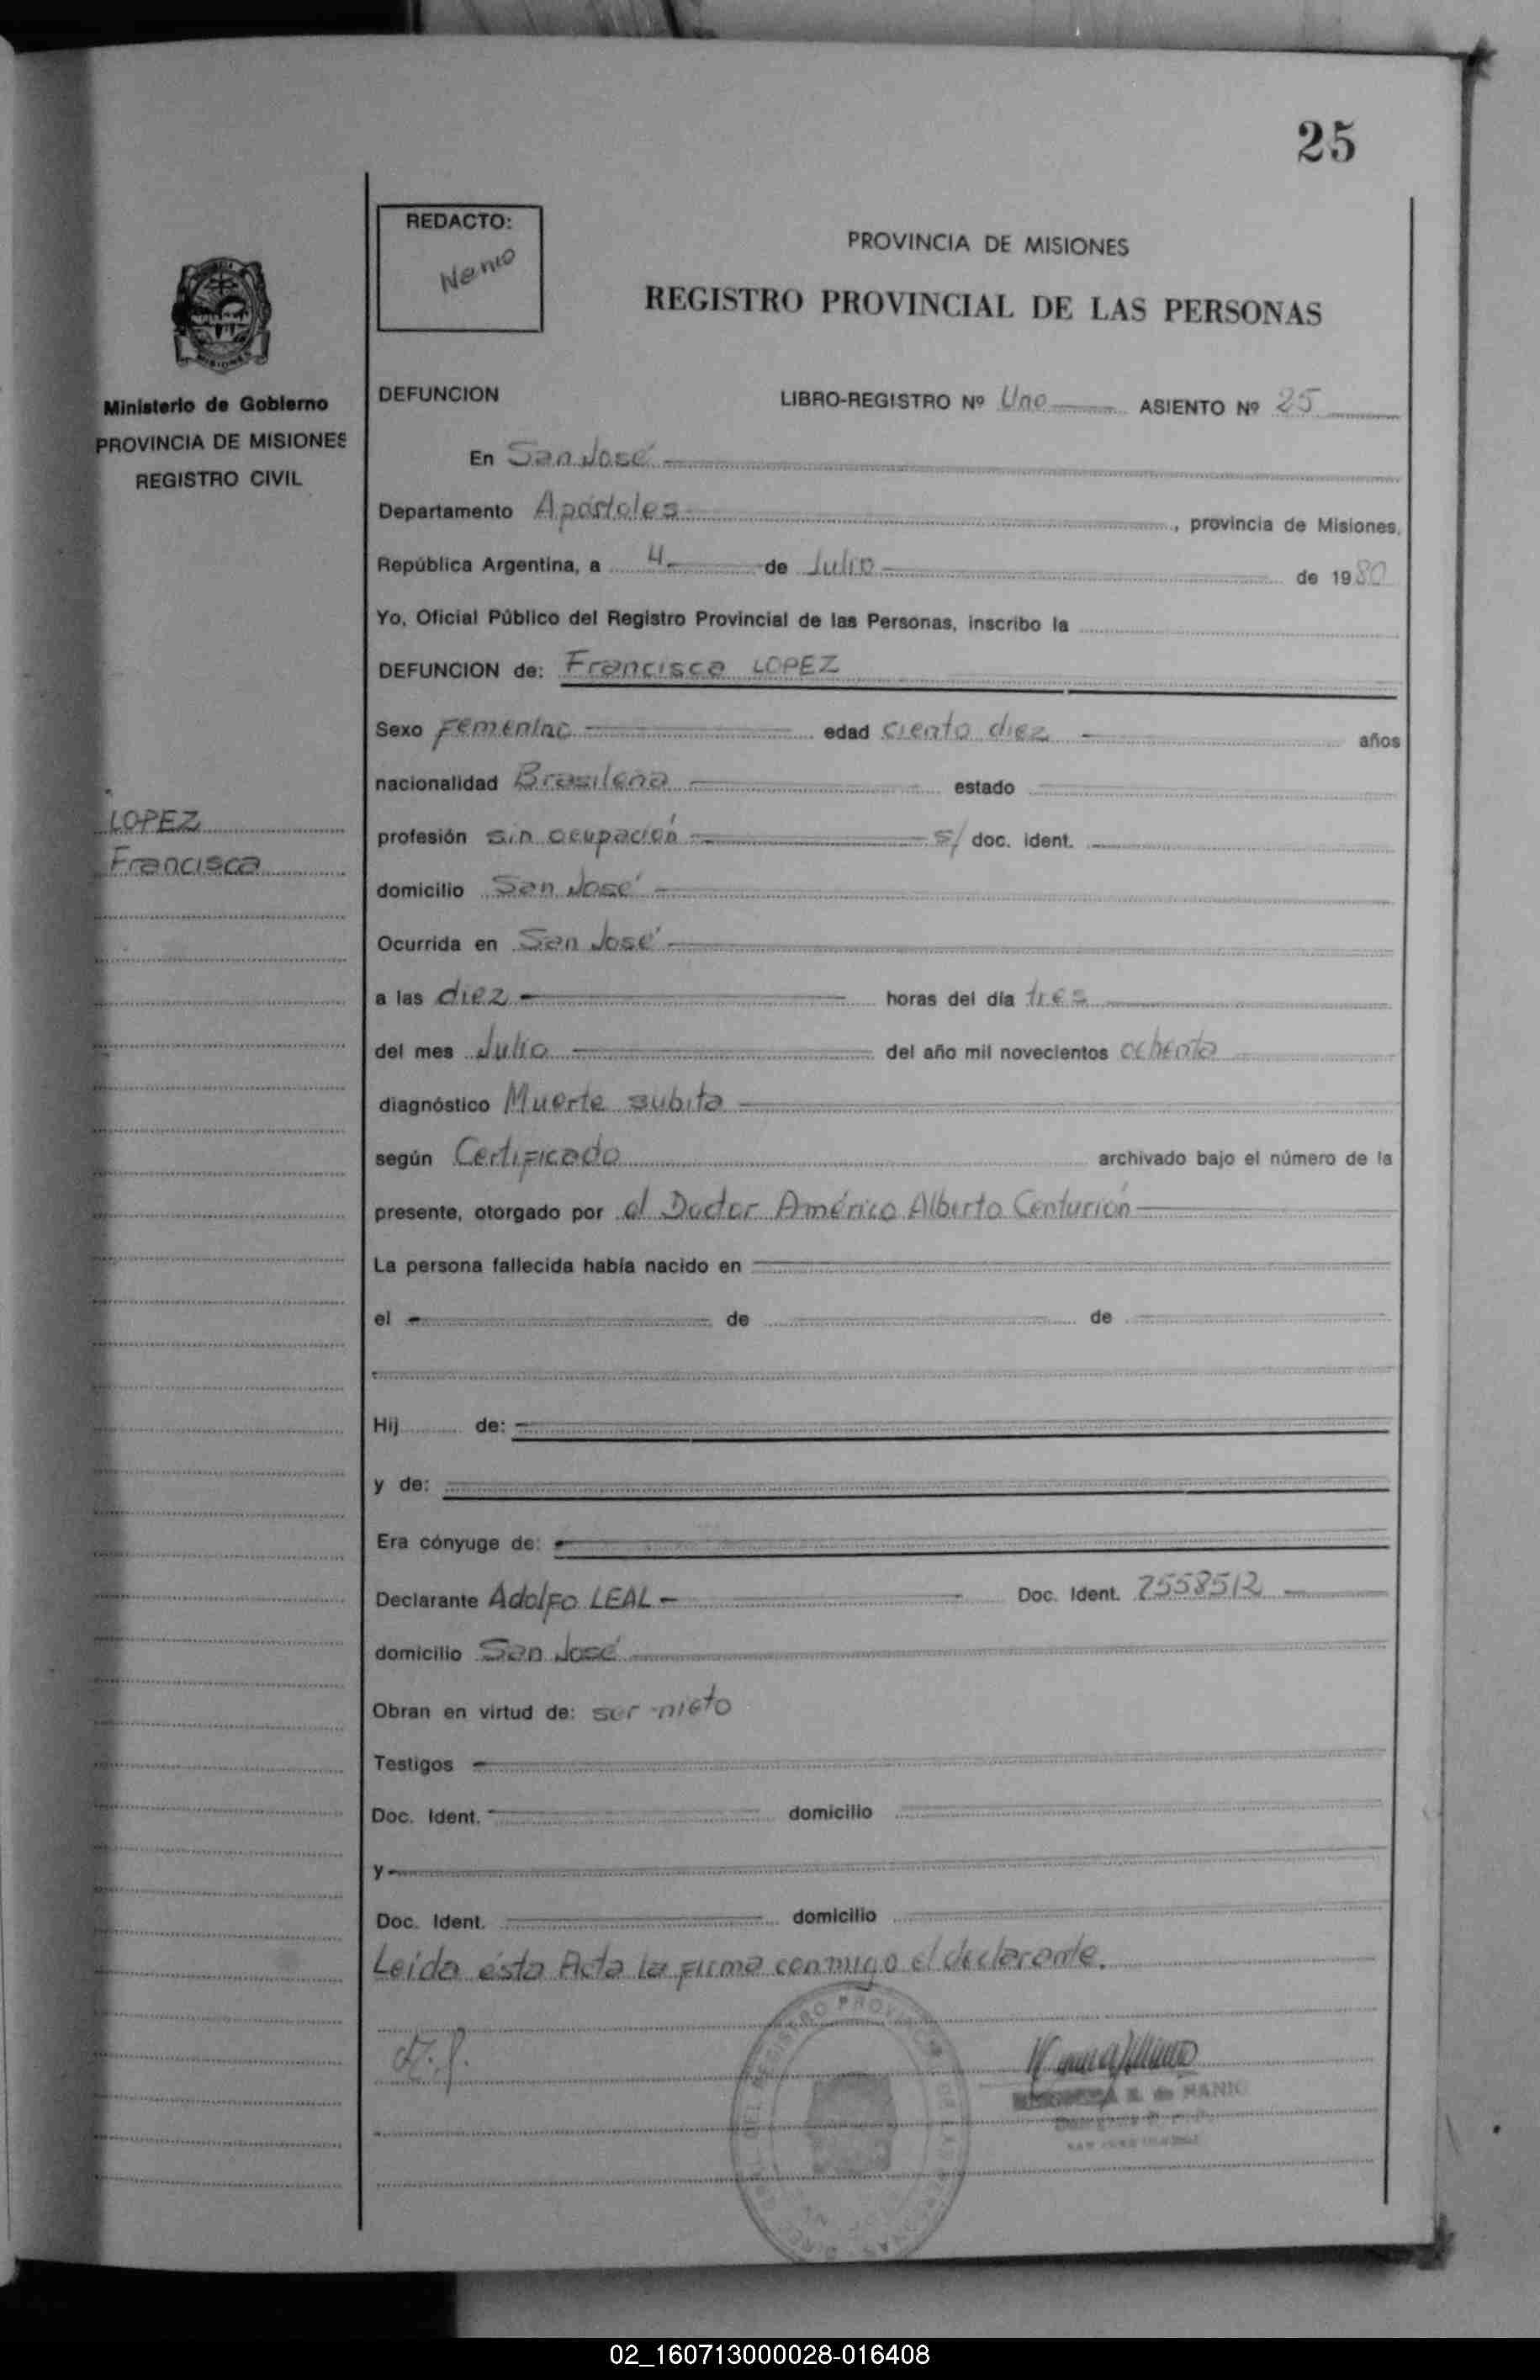 25
REDACTO:
Nanio
PROVINCIA DE MISIONES
REGISTRO PROVINCIAL DE LAS PERSONAS
Ministerio de Gobierno
PROVINCIA DE MISIONES
REGISTRO CIVIL
LOPEZ
Francisca
DEFUNCION LIBRO-REGISTRO Nº Uno ASIENTO Nº 25
En San José
Departamento Apóstoles, provincia de Misiones,
República Argentina, a 4 de Julio de 1980
Yo, Oficial Público del Registro Provincial de las Personas, inscribo la
DEFUNCION de: Francisca LOPEZ
Sexo Femenino edad ciento diez años
nacionalidad Brasileña estado
profesión sin ocupación s/ doc. ident.
domicilio San José
Ocurrida en San José
a las diez horas del día tres
del mes Julio del año mil novecientos ochenta
diagnóstico Muerte subita
según Certificado archivado bajo el número de la
presente, otorgado por el Doctor Américo Alberto Centurión
La persona fallecida había nacido en
el de de
Hij de:
y de:
Era cónyuge de:
Declarante Adolfo LEAL Doc. Ident. 7558512
domicilio San José
Obran en virtud de: ser nieto
Testigos
Doc. Ident. domicilio
y
Doc. Ident. domicilio
Leida ésta Acta la firma conmigo el declarante.
02_160713000028-016408